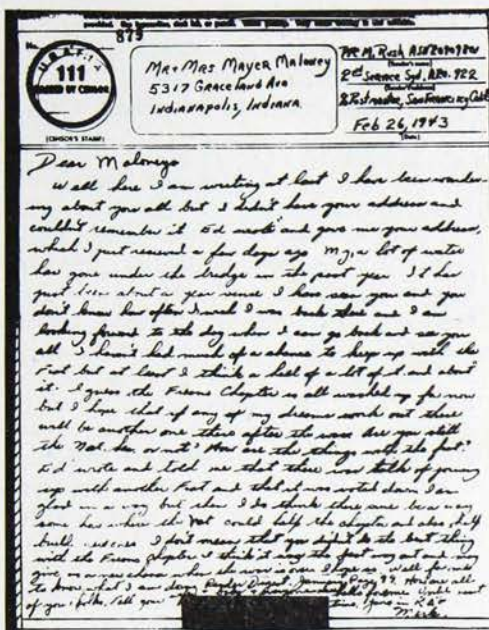 No. 879
U.S.A.F.I.A.
111
PASSED BY CENSOR
(CENSOR'S STAMP)
Mr & Mrs Mayer Maloney
5317 Graceland Ave
Indianapolis, Indiana
M. Rush
2nd Service Sqd, APO. 922
Postmaster, San Francisco Calif
Feb 26, 1943
(Date)
Dear Maloneys
Well here I am writing at last I have been wonder-
ing about you all but I didn't have your address and
couldn't remember it Ed wrote and gave me your address,
which I just received a few days ago My, a lot of water
has gone under the bridge in the past year It has
just been about a year since I have seen you and you
don't know how often I wish I was back there and I am
looking forward to the day when I can go back and see you
all I haven't had much of a chance to keep up with the
Frat but at least I think a hell of a lot of it and about
it. I guess the Fresno Chapter is all washed up for now
but I hope that if any of my dreams work out there
will be another one there after the war Are you still
the Nat. Sec. or not? How are the things with the frat?
Ed wrote and told me that there was talk of joining
up with another Frat and that it was voted down I am
glad in a way but then I do think there must be a way
some how where the Nat could help the chapter and also help
I don't mean that you didn't do the best thing
with the Fresno chapter I think it was the fast way out and may
give us a new chance when the war is over I hope so. Well for me
to know what I am doing Readers Digest, January Page 99. How are all
of you folks. Tell you
Yours in